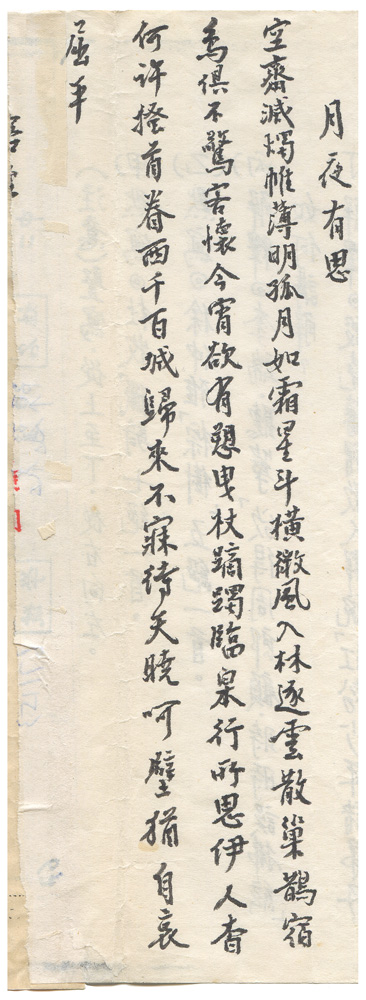 月夜有思
空齋滅燭帷薄明孤月如霜星斗橫微風入林逐雲散巢鵲宿
鳥俱不驚客懷今宵欲有愬曳杖躑躅臨皋行所思伊人杳
何許搔首眷西千百城歸來不寐待天曉呵壁猶自哀
屈平